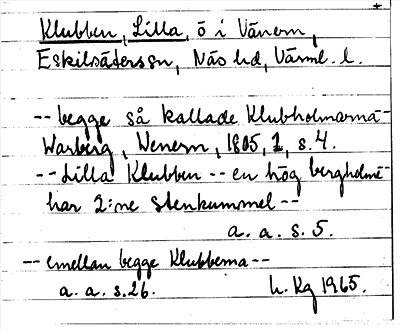 Klubben, Lilla, ö i Vänern,
Eskilsäterssn, Näs hd, Värml. l.
-- begge så kallade Klubholmarna -
Warberg, Wenern, 1805, 1, s. 4.
-- Lilla Klubben -- en hög bergholme -
har 2:ne stenkummel --
a. a. s. 5.
-- emellan begge Klubberna --
a. a. s. 26. h. Kg 1965.